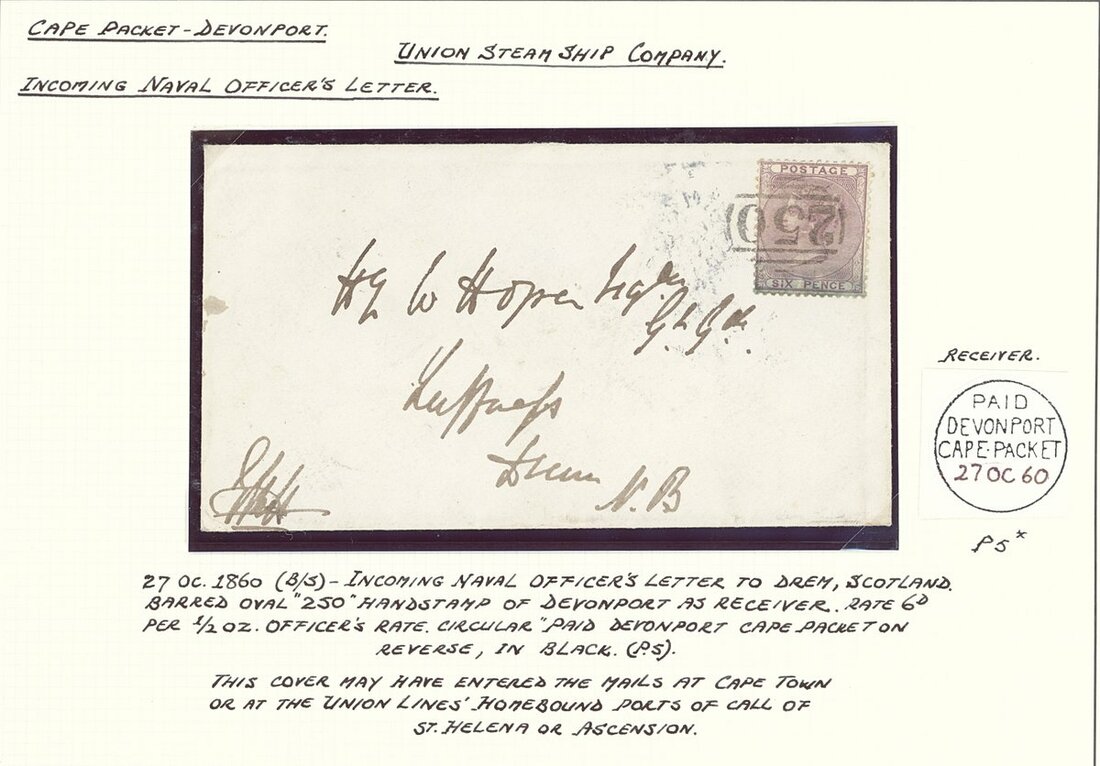 CAPE PACKET-DEVONPORT.
UNION STEAM SHIP COMPANY.
INCOMING NAVAL OFFICER'S LETTER.
POSTAGE
250
SIX PENCE
W Hope
Luffness
Drem
N.B
RECEIVER.
PAID
DEVONPORT
CAPE-PACKET
27 OC 60
P5*
27 OC. 1860 (B/S) - INCOMING NAVAL OFFICER'S LETTER TO DREM, SCOTLAND.
BARRED OVAL "250" HANDSTAMP OF DEVONPORT AS RECEIVER. RATE 6D
PER 1/2 OZ. OFFICER'S RATE. CIRCULAR "PAID DEVONPORT CAPE PACKET ON
REVERSE, IN BLACK. (P.5).
THIS COVER MAY HAVE ENTERED THE MAILS AT CAPE TOWN
OR AT THE UNION LINES' HOMEBOUND PORTS OF CALL OF
ST. HELENA OR ASCENSION.